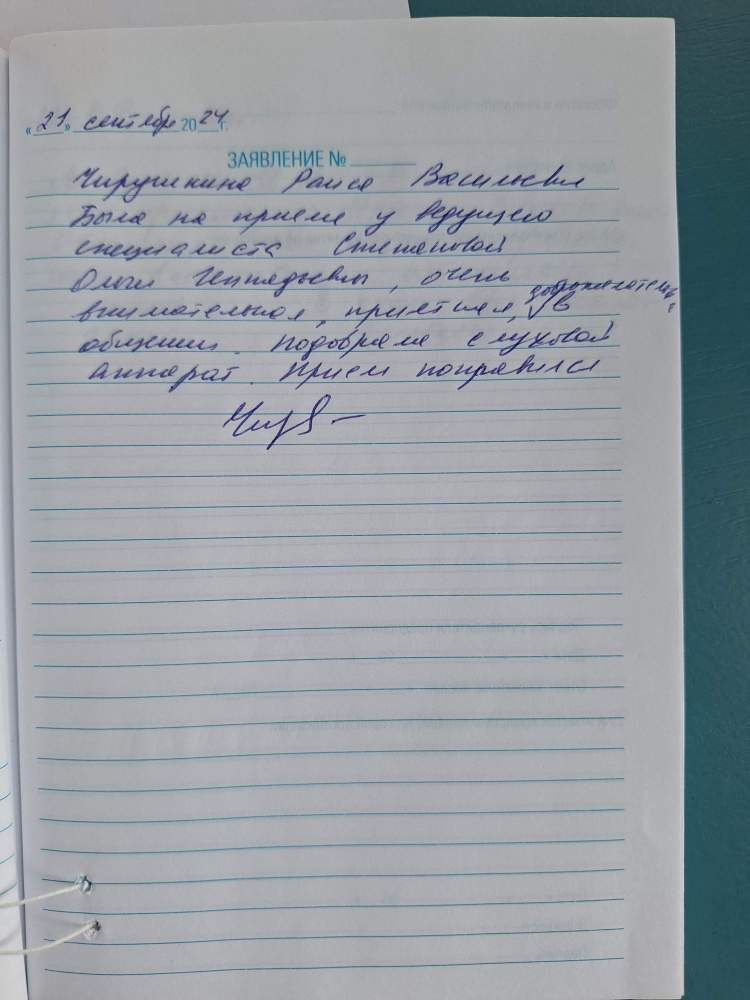 «21» сентябр 2024г.
ЗАЯВЛЕНИЕ №
Чирушкина Раиса Васильевн
Была на приеме у ведущего
специалиста Степановой
Ольги Геннадьевны, очень
внимательная, приятная, доброжелательн. в
общении. Подобрала слуховой
аппарат. Прием понравился